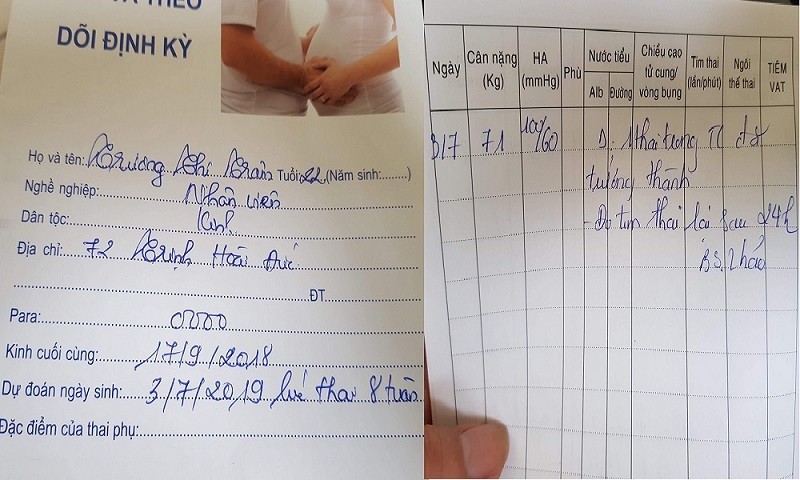 THEO
DÕI ĐỊNH KỲ
Họ và tên: Trương Thị Trân Tuổi: 22 (Năm sinh:........)
Nghề nghiệp: Nhân viên
Dân tộc: Kinh
Địa chỉ: 72 Trịnh Hoài Đức
ĐT
Para: 0000
Kinh cuối cùng: 17/9/2018
Dự đoán ngày sinh: 3/7/2019 thai 8 tuần
Đặc điểm của thai phụ:
Ngày Cân nặng (Kg) HA (mmHg) Phù Nước tiểu Alb Đường Chiều cao tử cung/ vòng bụng Tim thai (lần/phút) Ngôi thế thai TIÊM VAT
3/7 71 100/60 D: 1 thai trong TC đã
trưởng thành
- Đo tim thai lại sau 24h
BS. Thảo